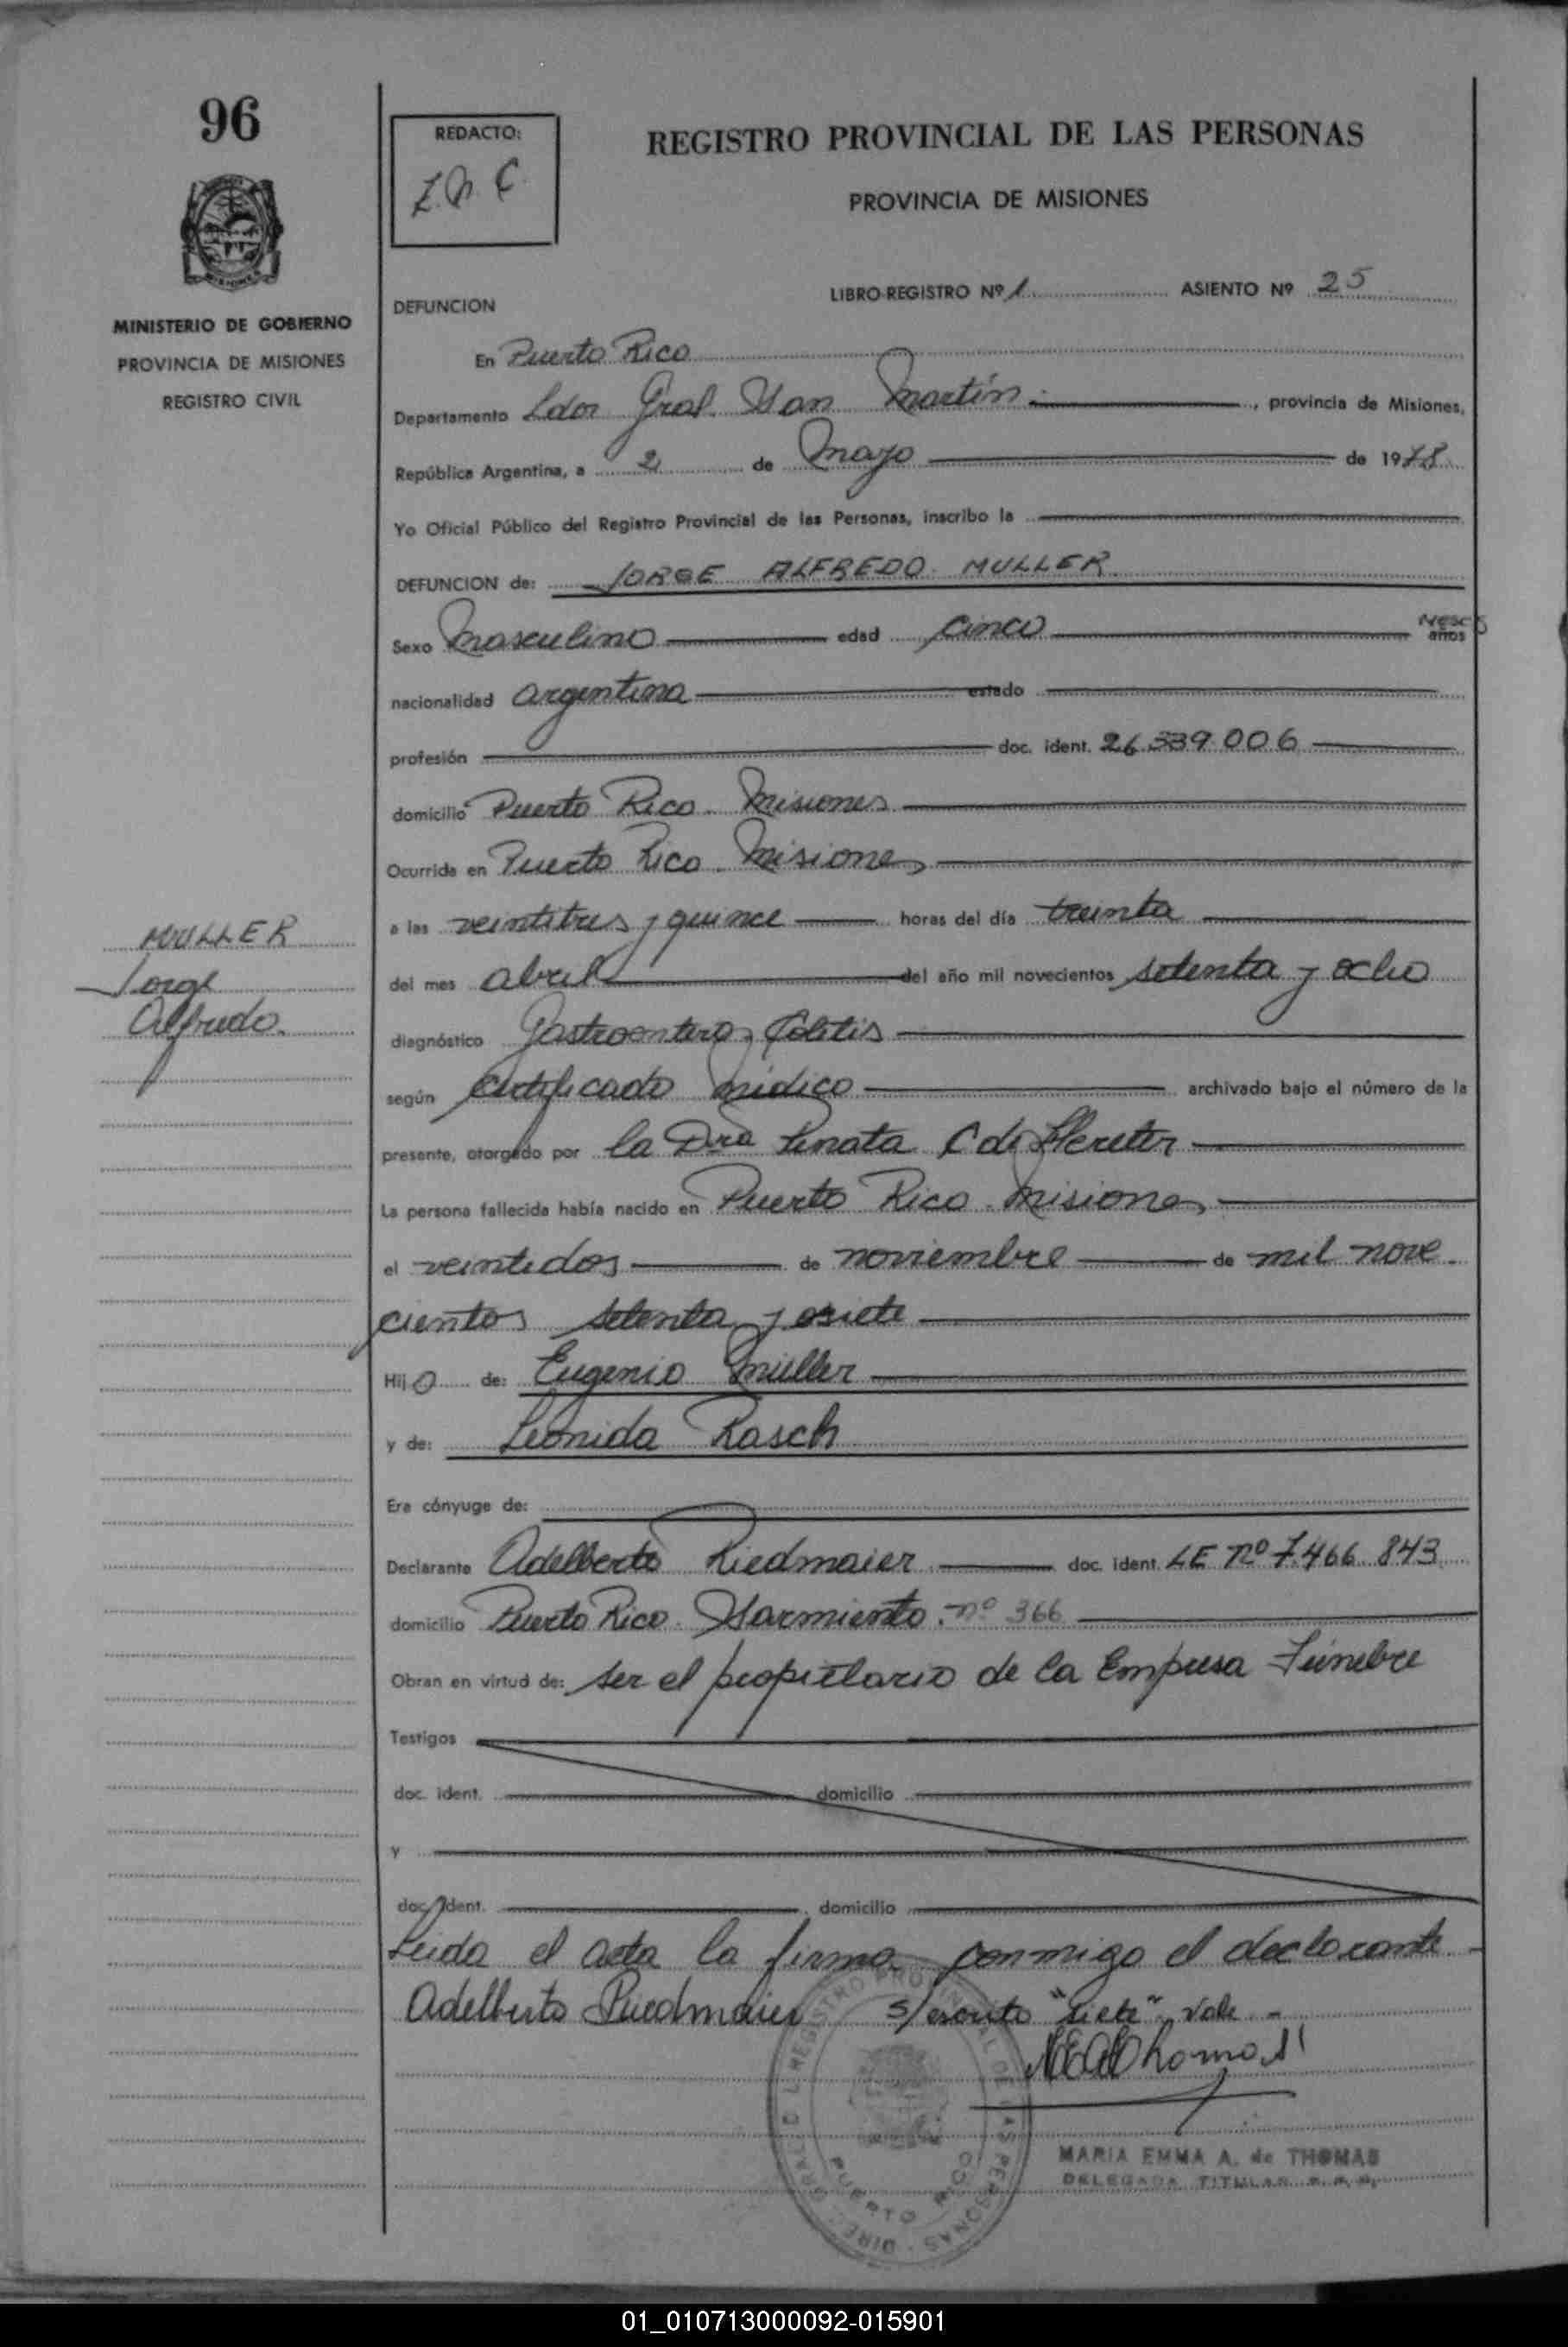 96
MINISTERIO DE GOBIERNO
PROVINCIA DE MISIONES
REGISTRO CIVIL
MULLER
Jorge
Alfredo.
REDACTO:
REGISTRO PROVINCIAL DE LAS PERSONAS
PROVINCIA DE MISIONES
LIBRO-REGISTRO Nº 1 ASIENTO Nº 25
DEFUNCION
En Puerto Rico
Departamento Ldor Gral. San Martín. , provincia de Misiones,
República Argentina, a 2 de Mayo de 1978
Yo Oficial Público del Registro Provincial de las Personas, inscribo la
DEFUNCION de: JORGE ALFREDO MULLER
Sexo Masculino edad cinco meses años
nacionalidad argentina estado
profesión doc. ident. 26.339.006
domicilio Puerto Rico. Misiones
Ocurrida en Puerto Rico. Misiones
a las veintitres y quince horas del día treinta
del mes abril del año mil novecientos setenta y ocho
diagnóstico Gastroentero Colitis
según certificado médico archivado bajo el número de la
presente, otorgado por la Dra Renata C de
La persona fallecida había nacido en Puerto Rico. Misiones
el veintidos de noviembre de mil nove
cientos setenta y siete
Hijo de: Eugenio Müller
y de: Leonida Rasch
Era cónyuge de:
Declarante Adelberto Riedmaier doc. ident. LE nº 7.466.843
domicilio Puerto Rico. Sarmiento. nº 366
Obran en virtud de: ser el propietario de la Empresa Fúnebre
Testigos
doc. ident. domicilio
y
doc. ident. domicilio
Leida el acta la firma conmigo el declarante
Adelberto Riedmaier s/escrito "siete" vale -
MARIA EMMA A. de THOMAS
DELEGADA TITULAR R.P.P.
REGISTRO PROVINCIAL DE LAS PERSONAS
PUERTO RICO
01_010713000092-015901